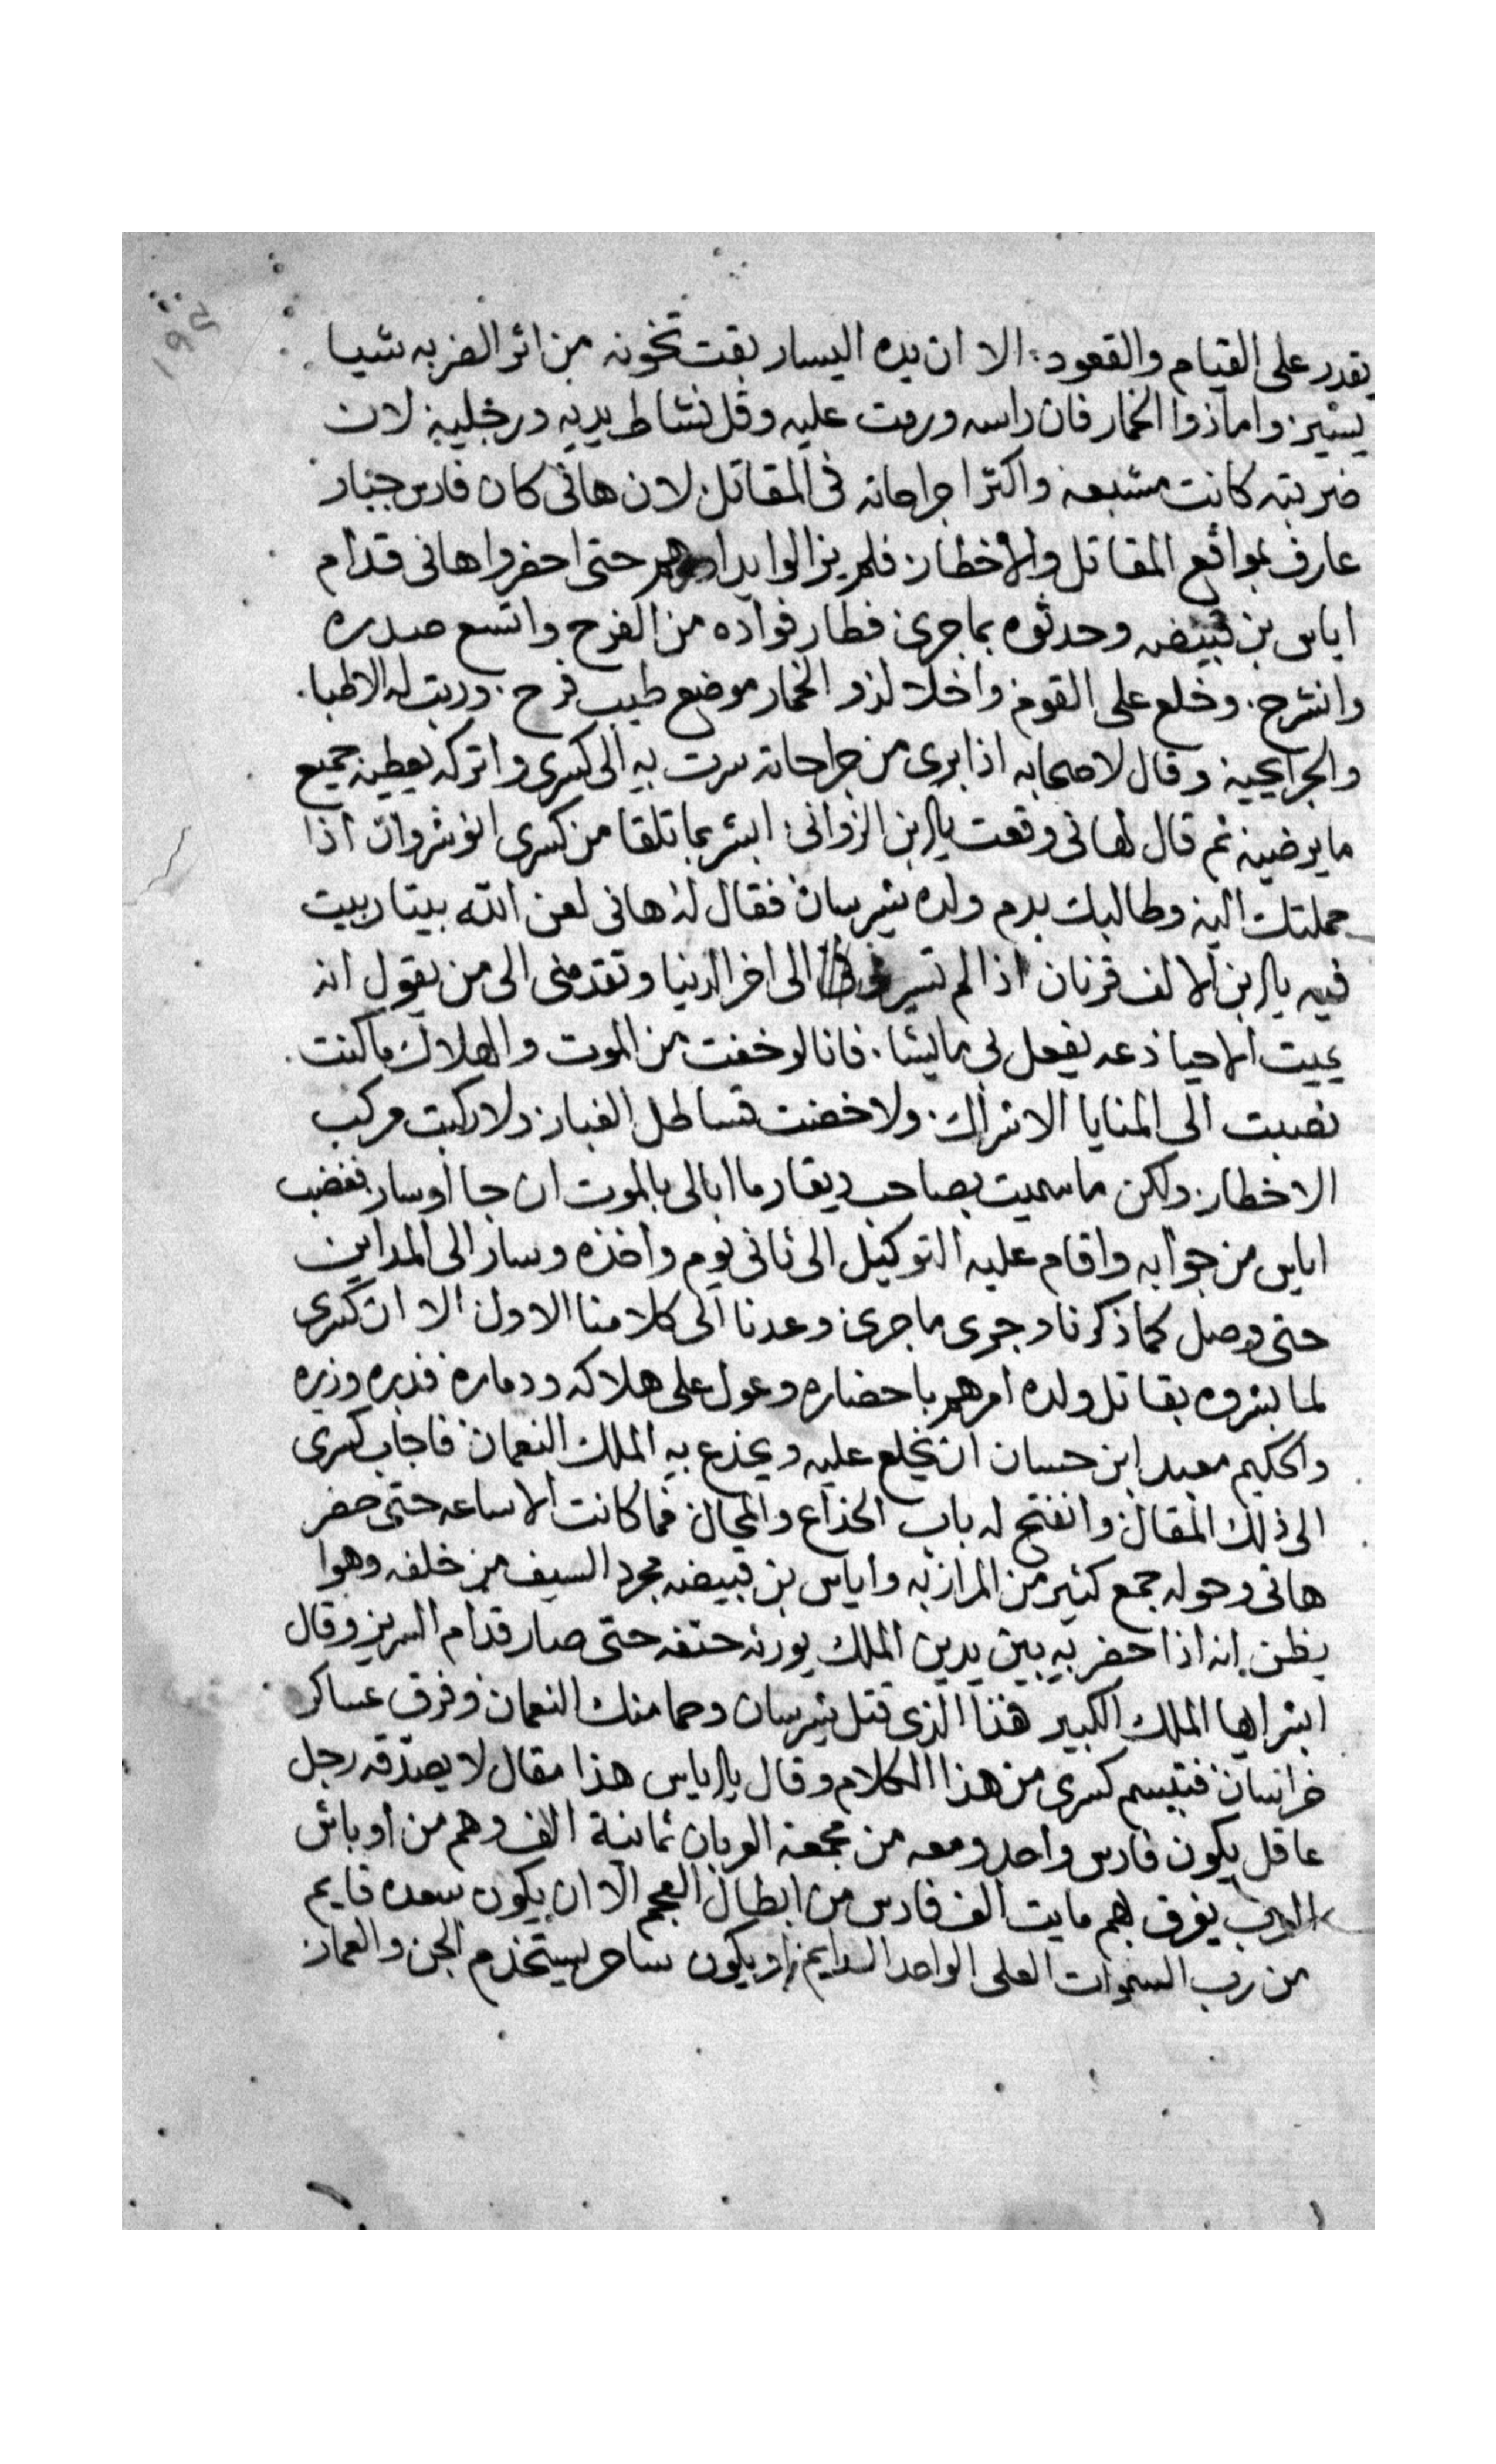 ١٩٤
يقدر على القيام والقعود: الا ان يده اليسار بقت تخونه من اثر الضربه شيا
يسير: واما ذوا الخمار فان راسه ورمت عليه وقل نشاط يديه ورجليه لان
ضربته كانت مشبعه واكثر اجراحاته فى المقاتل لان هانى كان فارس جبار
عارف بمواقع المقاتل والاخطار: فلم يزالوا حتى احضروا هانى قدام
اياس بن قبيضه وحدثوه بما جرى فطار فواده من الفرح واتسع صدره
وانشرح. وخلع على القوم واخلا لذو الخمار موضع طيب فرح. ورتب له الاطبا.
والجرايحيه وقال لاصحابه اذا برى من جراحاته سرت به الى كسرى واتركه يعطيه جميع
ما يرضيه ثم قال لهانى وقعت يا بن الزوانى: ابشر بما تلقا من كسرى انوشروان اذا
حملتك اليه وطالبك بدم ولده شيرسان فقال له هانى لعن الله بيتا ربيت
فيه يا بن الالف قرنان اذا لم تسير الى اخر الدنيا وتقدمنى الى من يقول انه
يميت الاحيا دعه يفعل بى ما يشا. فانا لو خفت من الموت والهلاك ما كنت.
نصبت الى المنايا الاشراك. ولا خضت قساطل الغبار: ولا ركبت مركب
الاخطار: ولكن ما سميت بصاحب ديقار ما ابالى بالموت ان جا او سار فغضب
اياس من جوابه واقام عليه التوكيل الى ثانى يوم واخذه وسار الى المداين
حتى وصل كما ذكرنا وجرى ما جرى: وعدنا الى كلامنا الاول الا ان كسرى
لما بشروه بقاتل ولده امرهم باحضاره وعول على هلاكه ودماره فدبره وزيره
والحكيم معبد ابن حسان ان يخلع عليه ويخدع به الملك النعمان فاجاب كسرى
الى ذلك المقال: وانفتح له باب الخداع والمحال: فما كانت الا ساعه حتى حضر
هانى وحوله جمع كثير من المرازبه واياس بن قبيضه مجرد السيف من خلفه وهوا
يظن انه اذا حضر به بين يدين الملك يورثه حتفه حتى صار قدام السرير وقال
ابشر ايها الملك الكبير هذا الذى قتل شيرسان وحما منك النعمان وفرق عساكر
خراسان: فتبسم كسرى من هذا الكلام وقال يا اياس هذا مقال لا يصدقه رجل
عاقل يكون فارس واحد ومعه من مجمعة العربان ثمانية الف وهم من اوباش
العرب يفرق بهم مايت الف فارس من ابطال العجم الا ان يكون سعده قايم
من رب السموات العلى الواحد الدايم: او يكون ساحر يستخدم الجن والعمار.